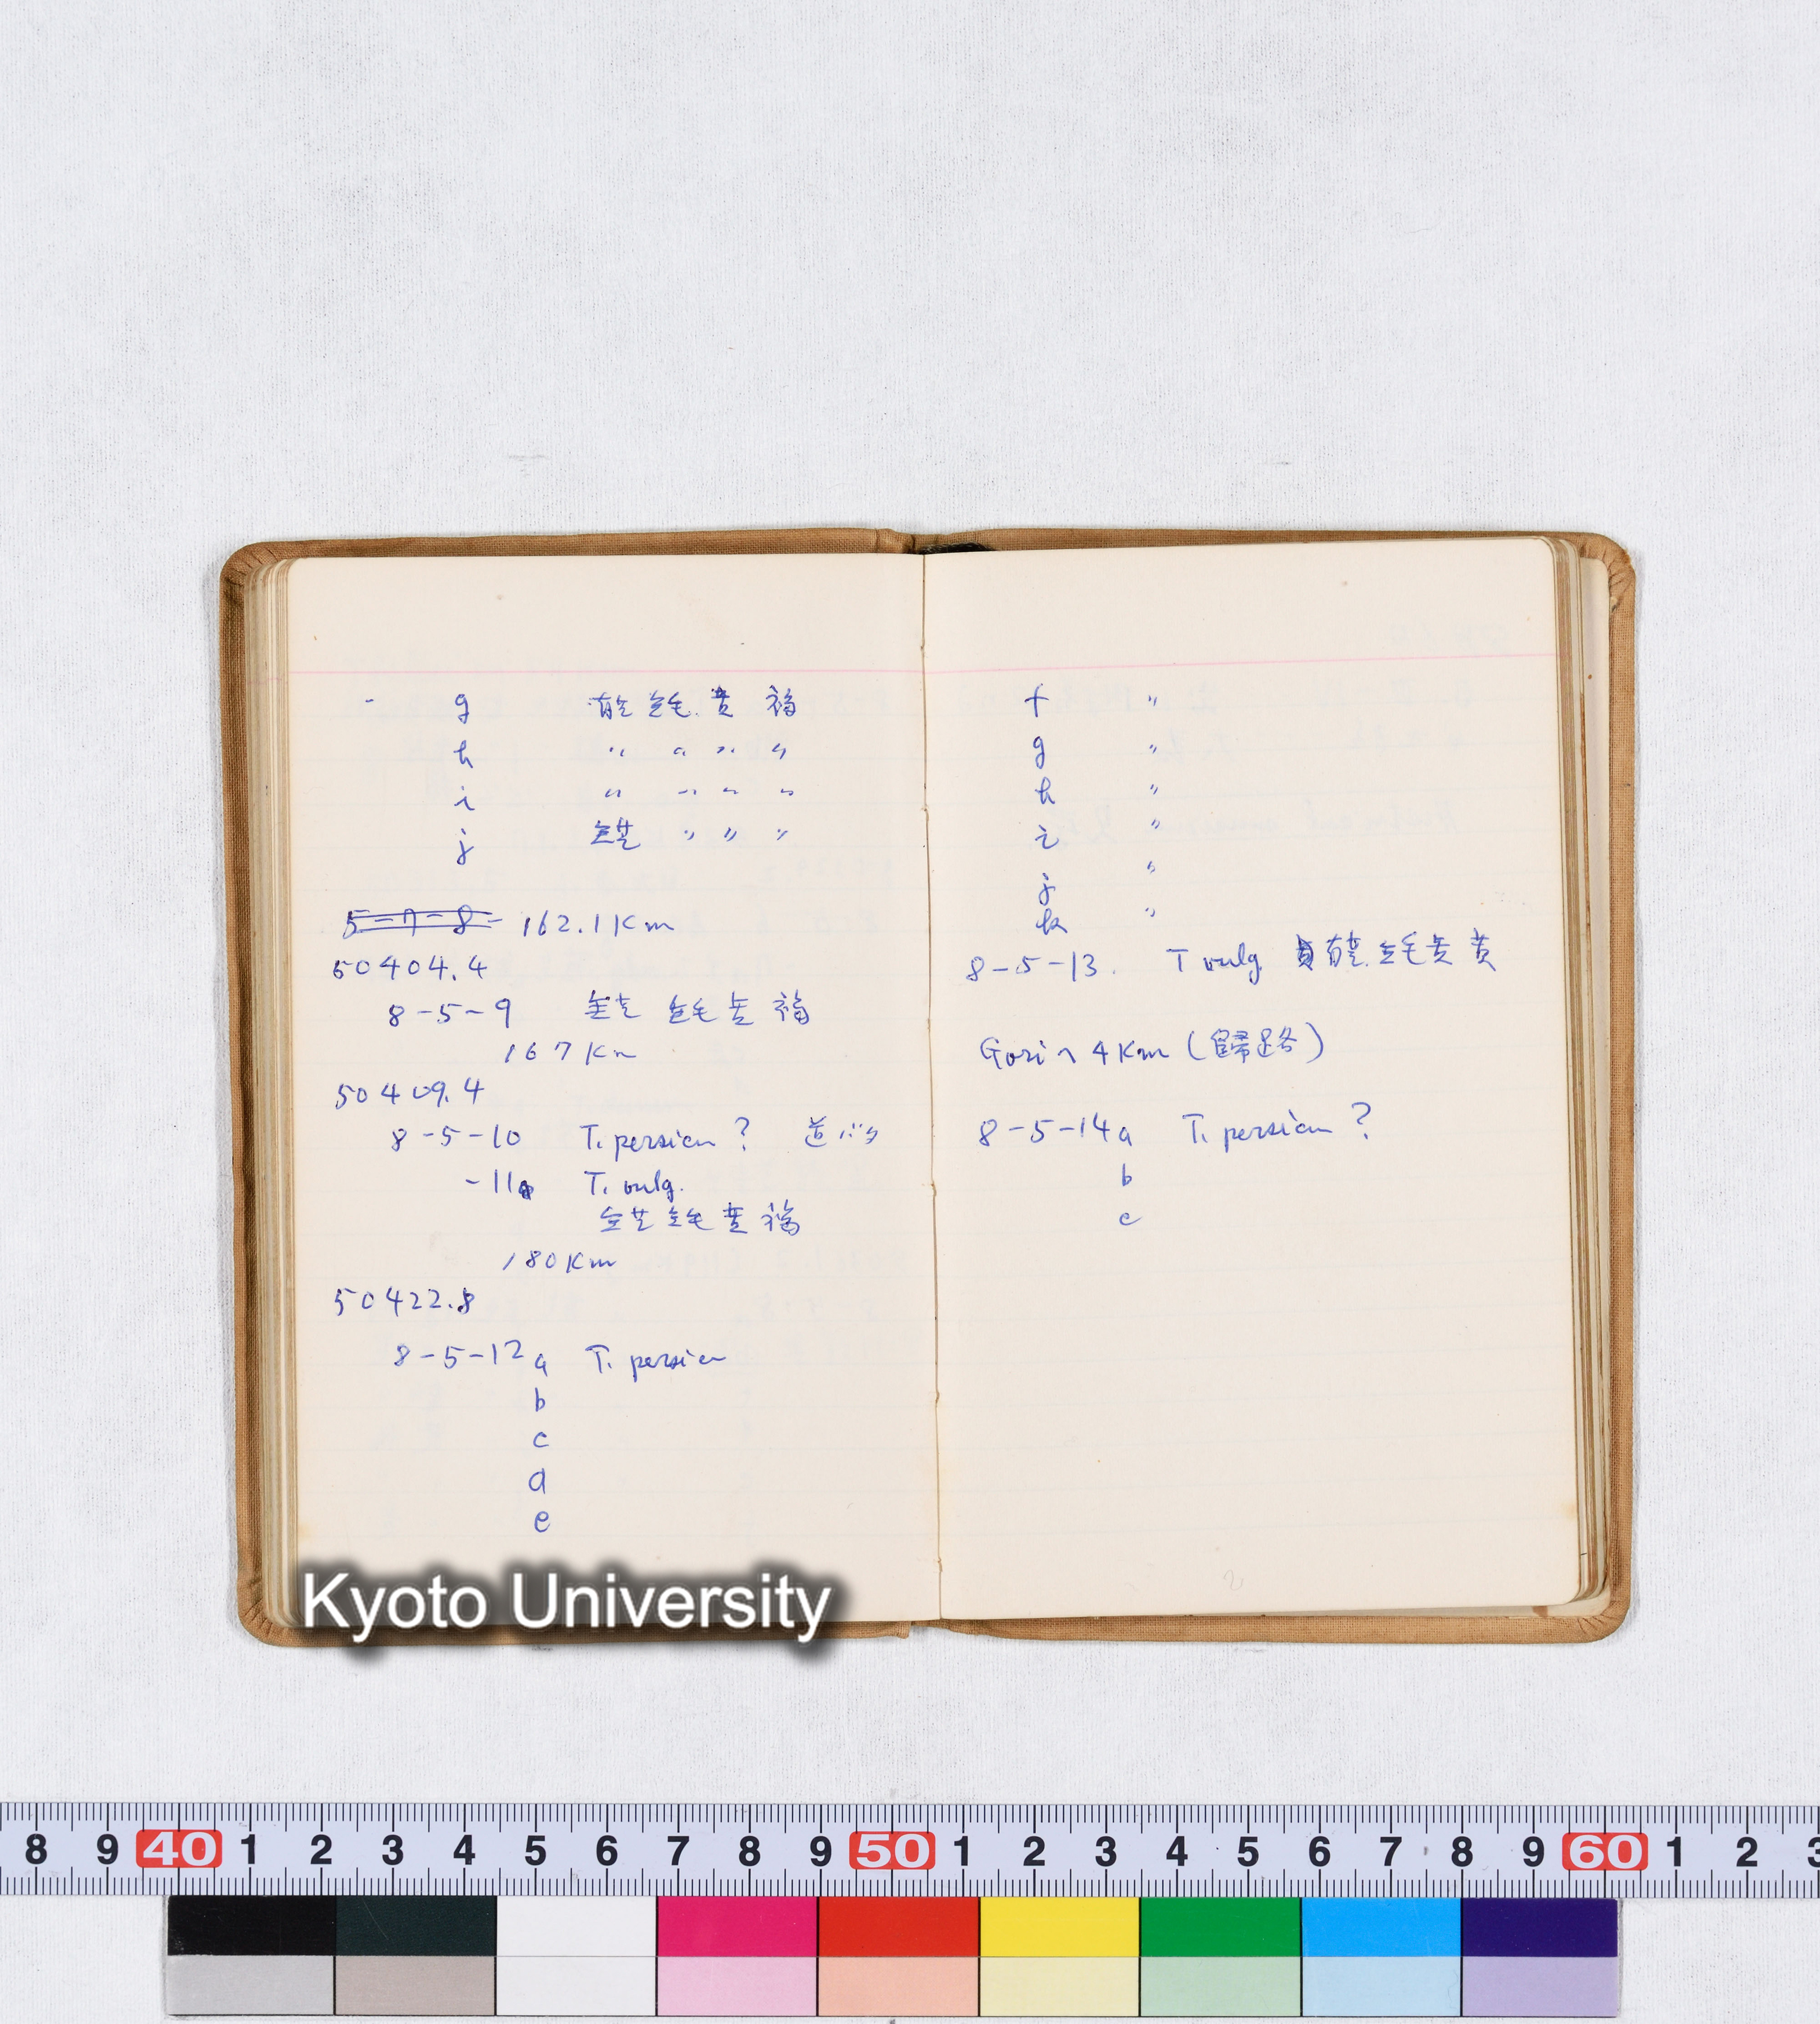 - g 有芒 無毛 黄 褐
h 〃 〃 〃 〃
i 〃 〃 〃 〃
j 無芒 〃 〃 〃
5-7-8- 162.1 Km
50404.4
8-5-9 無芒 無毛 黄 褐
167 Km
50409.4
8-5-10 T. persicum ? 道バタ
-11 T. vulg.
無芒 無毛 黄 褐
180 Km
50422.8
8-5-12 a T. persicum
b
c
d
e
f 〃
g 〃
h 〃
i 〃
j 〃
k 〃
8-5-13. T vulg. 有芒. 無毛 黄 黄
Gori へ 4 Km (歸路)
8-5-14 a T. persicum ?
b
c
Kyoto University
8 9 40 1 2 3 4 5 6 7 8 9 50 1 2 3 4 5 6 7 8 9 60 1 2 3